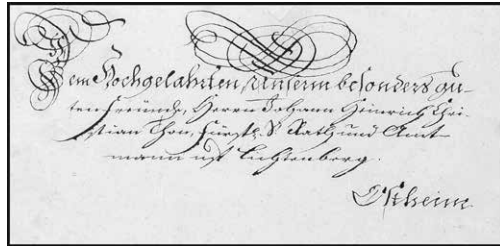 Dem Hochgelahrten, Unserm besonders gu-
ten Freunde, Herrn Johann Heinrich Chri-
stian Thon, Fürstl. S. Rath und Amt-
mann Lichtenberg.
Ostheim